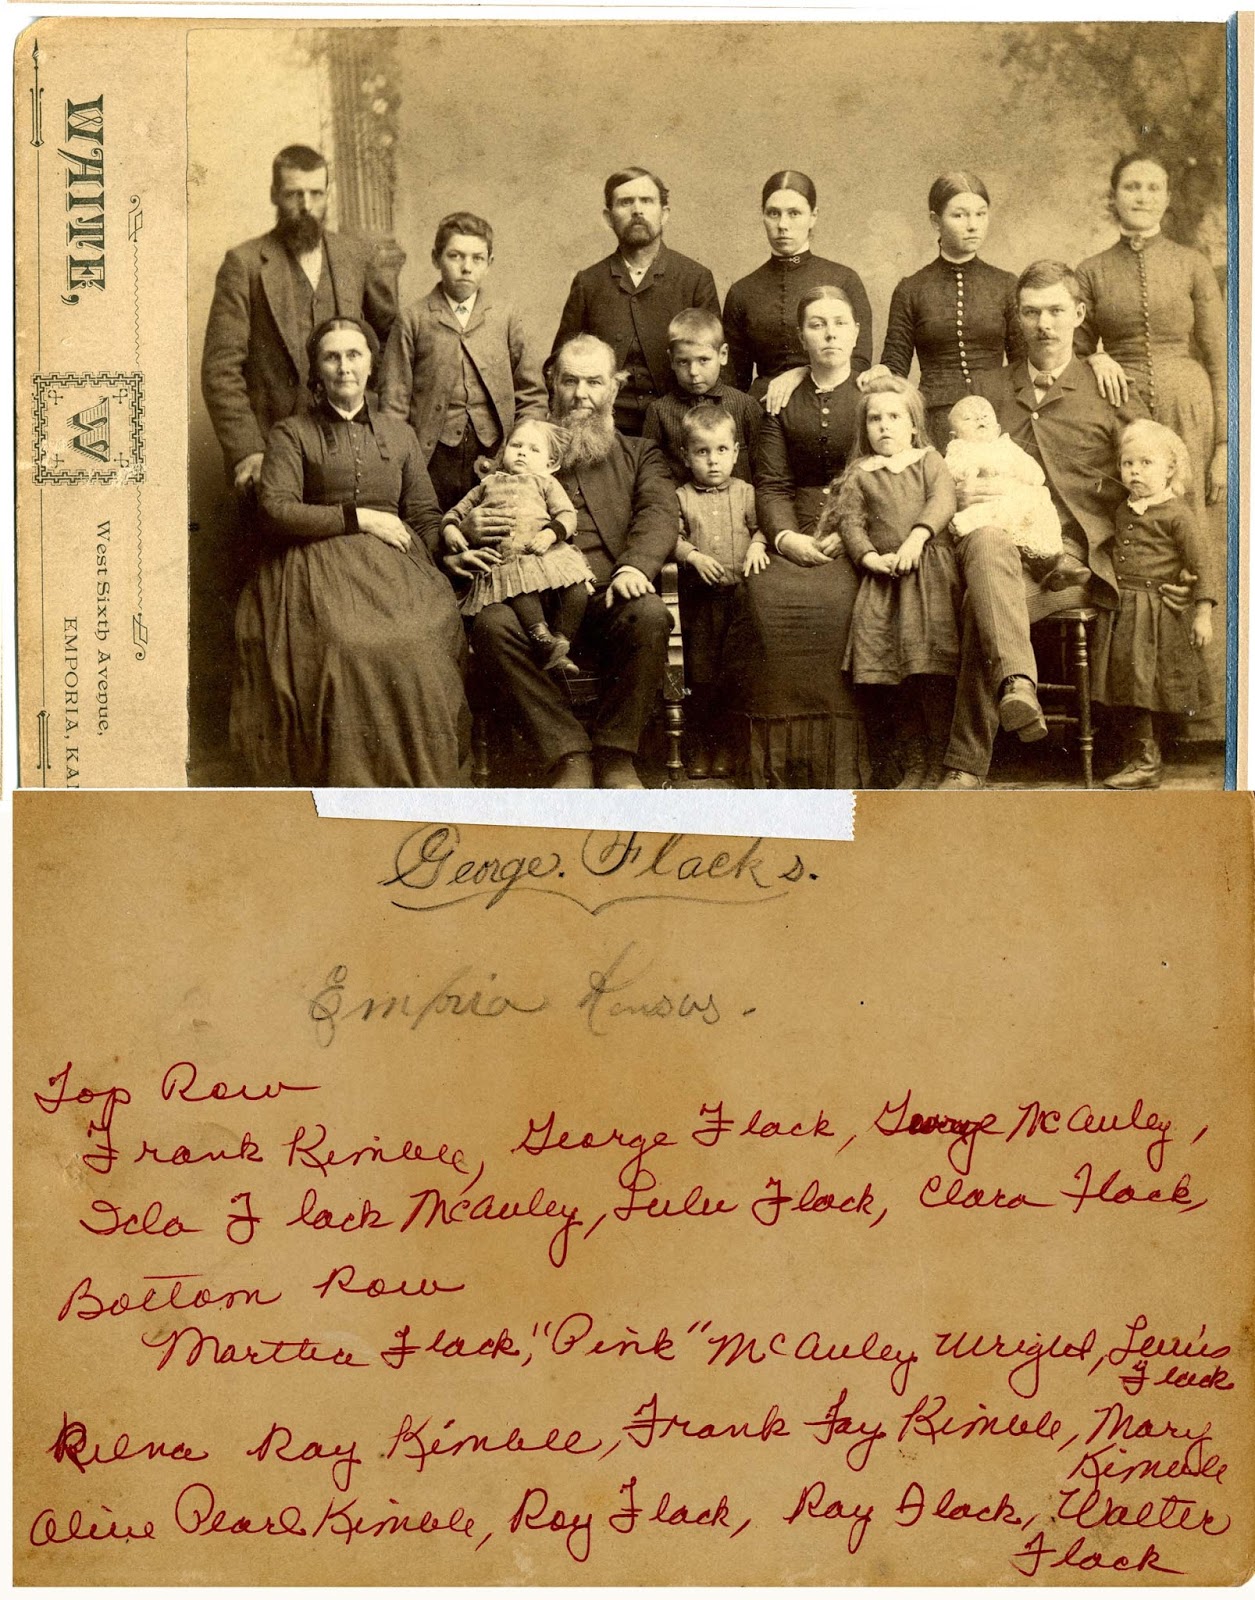 WAITE,
W
West Sixth Avenue,
EMPORIA, KA
George. Flacks.
Emporia Kansas.
Top Row
Frank Kimble, George Flack, George McAuley,
Ida Flack McAuley, Lulu Flack, Clara Flack,
Bottom Row
Martha Flack, "Pink" McAuley Wright, Lewis
Flack
Ray Kimble, Frank Fay Kimble, Mary
Kimble
Olive Pearl Kimble, Roy Flack, Ray Flack, Walter
Flack